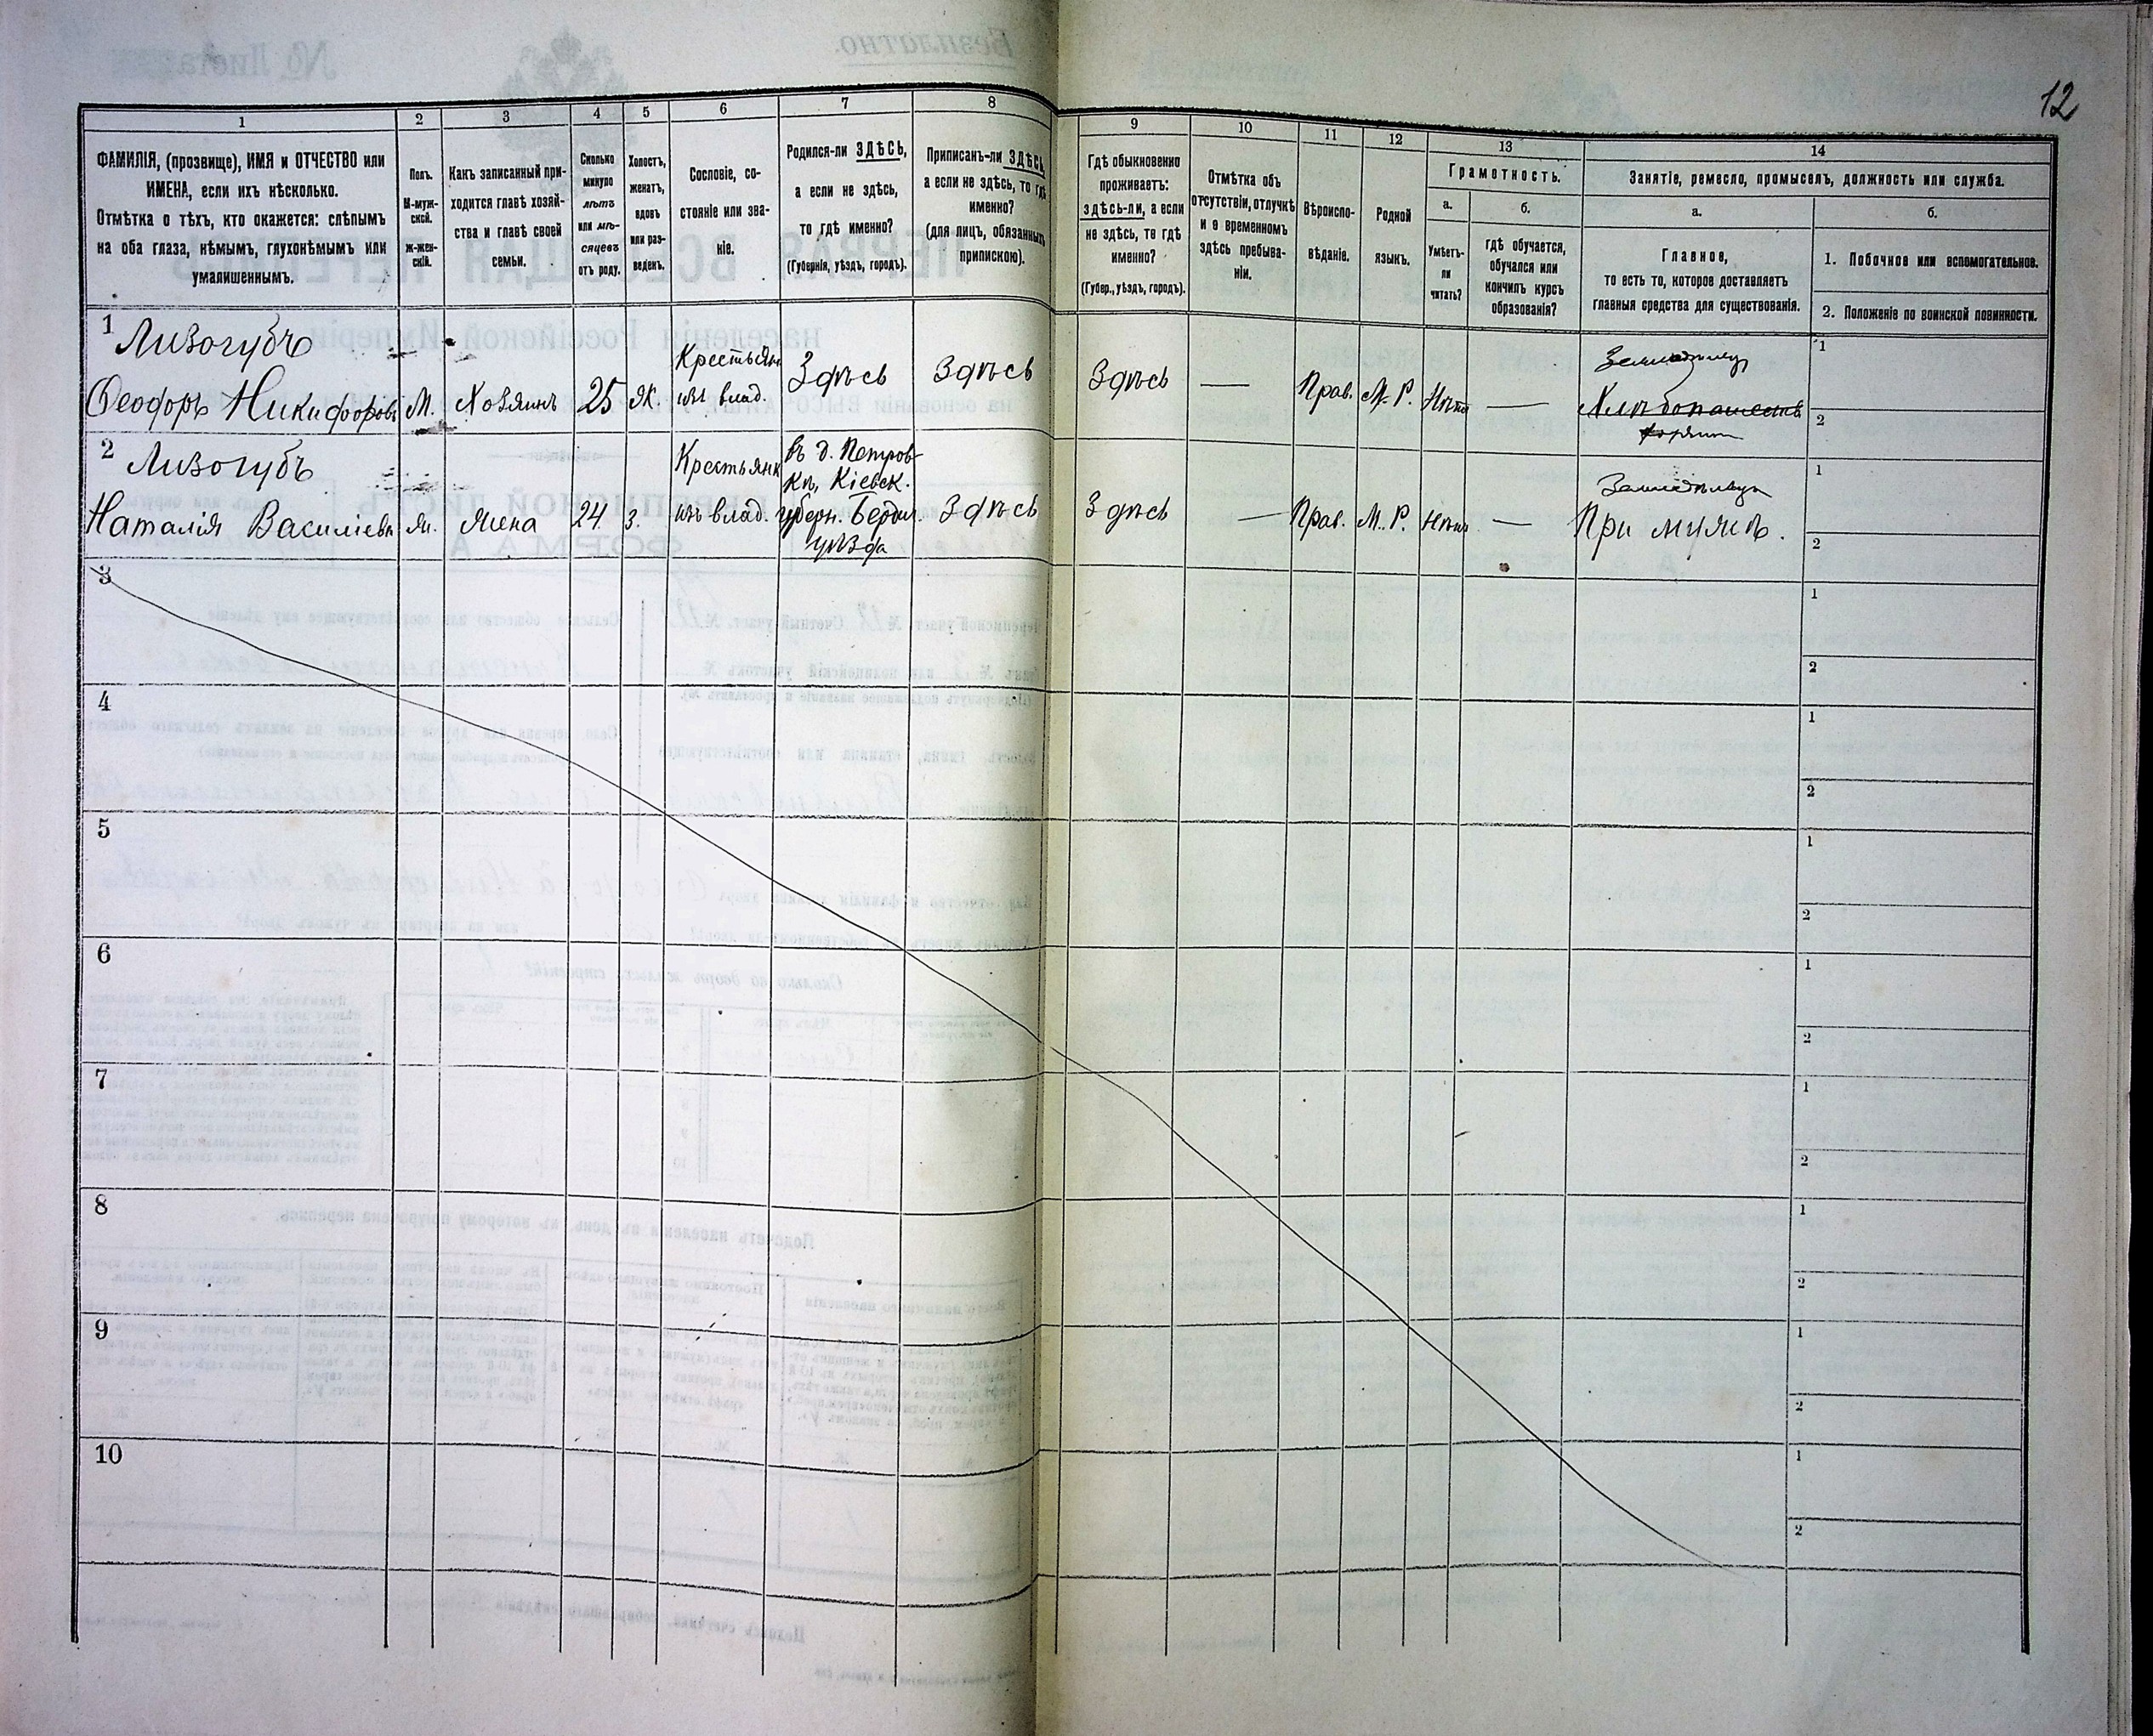 12
1
2
3
4
5
6
7
8
9
10
11
12
13
14
ФАМИЛІЯ, (прозвище), ИМЯ и ОТЧЕСТВО или
ИМЕНА, если ихъ нѣсколько.
Отмѣтка о тѣхъ, кто окажется: слѣпымъ
на оба глаза, нѣмымъ, глухонѣмымъ или
умалишеннымъ.
Полъ.
М-муж-
ской.
ж-жен-
скій.
Какъ записанный при-
ходится главѣ хозяй-
ства и главѣ своей
семьи.
Сколько
минуло
лѣтъ
или мѣ-
сяцевъ
отъ роду.
Холостъ,
женатъ,
вдовъ
или раз-
веденъ.
Сословіе, со-
стояніе или зва-
ніе.
Родился-ли ЗДѢСЬ,
а если не здѣсь,
то гдѣ именно?
(Губернія, уѣздъ, городъ).
Приписанъ-ли ЗДѢСЬ,
а если не здѣсь, то гдѣ
именно?
(для лицъ, обязанныхъ
припискою).
Гдѣ обыкновенно
проживаетъ:
здѣсь-ли, а если
не здѣсь, то гдѣ
именно?
(Губер., уѣздъ, городъ).
Отмѣтка объ
отсутствіи, отлучкѣ
и о временномъ
здѣсь пребыва-
ніи.
Вѣроиспо-
вѣданіе.
Родной
языкъ.
Грамотность.
а.
б.
Умѣетъ-
ли
читать?
гдѣ обучается,
обучался или
кончилъ курсъ
образованія?
Занятіе, ремесло, промыселъ, должность или служба.
а.
б.
Главное,
то есть то, которое доставляетъ
главныя средства для существованія.
1. Побочное или вспомогательное.
2. Положеніе по воинской повинности.
1 Лизогубъ
Ѳеодоръ Никифоровъ
М.
Хозяинъ
25
Ж.
Крестьян
изъ влад.
Здѣсь
Здѣсь
Здѣсь
—
Прав.
М. Р.
Нѣтъ
—
Земледѣлец
Хлѣбопашество
1
2
2 Лизогубъ
Наталія Василіевн
Ж.
Жена
24
З.
Крестьянк
изъ влад.
въ д. Петров-
кѣ, Кіевск.
губерн. Бердич.
уѣзда
Здѣсь
Здѣсь
—
Прав.
М. Р.
Нѣтъ
—
Земледѣлец
При мужѣ.
1
2
3
1
2
4
1
2
5
1
2
6
1
2
7
1
2
8
1
2
9
1
2
10
1
2